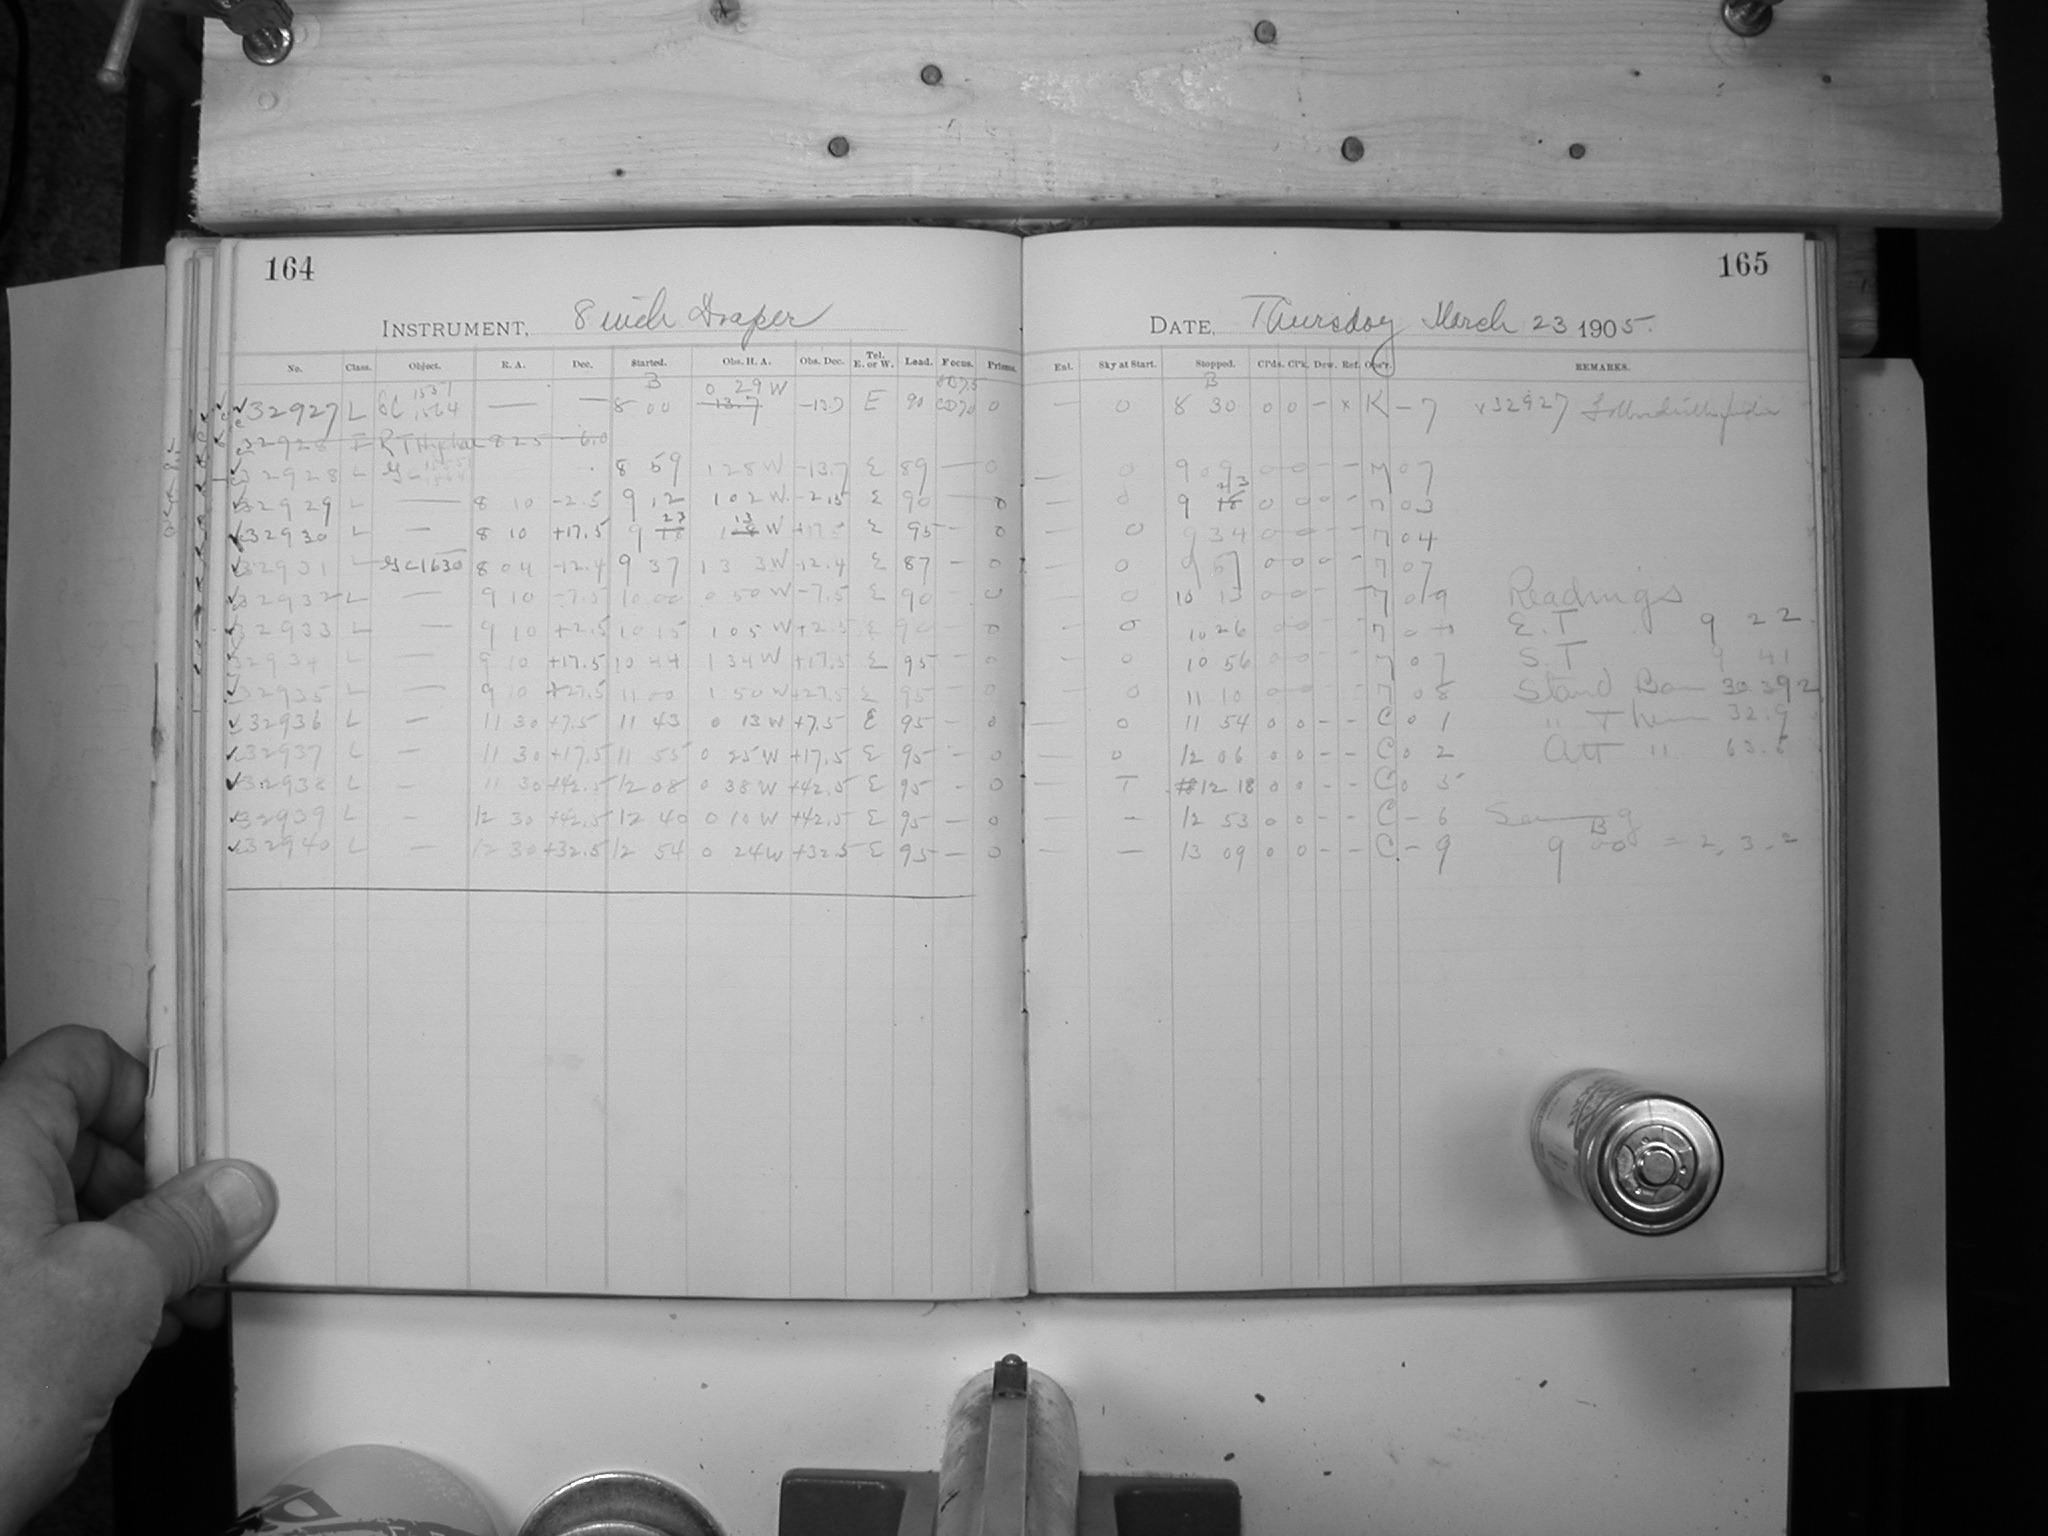 164
INSTRUMENT, 8 inch Draper
No. Class. Object. R. A. Dec. Started. Obs. H. A. Obs. Dec. Tel. E. or W. Lead. Focus. Prisms.
B
32927 L 1564 — — 8 00 0 29 W 13.7 -13.7 E 90 0
32928 825 -6.0
32928 L — - 8 59 1 28 W -13.7 E 89 — 0
32929 L — 8 10 -2.5 9 12 1 02 W -2.5 E 90 — 0
32930 L — 8 10 +17.5 9 23 18 1 13 W +17.5 E 95 - 0
32931 L GC 1630 8 04 -12.4 9 37 1 33 W -12.4 E 87 - 0
32932 L — 9 10 -7.5 10 00 0 50 W -7.5 E 90 - 0
32933 L — 9 10 +2.5 10 15 1 05 W +2.5 E 90 - 0
32934 L — 9 10 +17.5 10 44 1 34 W +17.5 E 95 - 0
32935 L — 9 10 +27.5 11 00 1 50 W +27.5 E 95 - 0
32936 L - 11 30 +7.5 11 43 0 13 W +7.5 E 95 - 0
32937 L — 11 30 +17.5 11 55 0 25 W +17.5 E 95 - 0
32938 L - 11 30 +42.5 12 08 0 38 W +42.5 E 95 - 0
32939 L - 12 30 +42.5 12 40 0 10 W +42.5 E 95 - 0
32940 L - 12 30 +32.5 12 54 0 24 W +32.5 E 95 — 0
165
DATE, Thursday March 23 1905.
Enl. Sky at Start. Stopped. Cl'ds. Cl'k. Dew. Ref. Obs'r. REMARKS.
B
— 0 8 30 0 0 - x K - 7 32927
— 0 9 09 0 0 - - M 0 7
— 0 9 23 18 0 0 0 - M 0 3
— 0 9 34 0 0 - - M 0 4
— 0 9 57 0 0 0 - M 0 7
— 0 10 13 0 0 - - M 0 9 Readings
— 0 10 26 0 0 - - M 0 E.T 9 22
— 0 10 56 0 0 - - M 0 7 S.T 9 41
— 0 11 10 0 0 - - M 0 8 Stand Bar 30.392
— 0 11 54 0 0 - - C 0 1 " Ther 32.9
— 0 12 06 0 0 - - C 0 2 Att "
— T 12 18 0 0 - - C 0 5
— - 12 53 0 0 - - C - 6
— — 13 09 0 0 - - C - 9 9 B 00 = 2, 3, 2